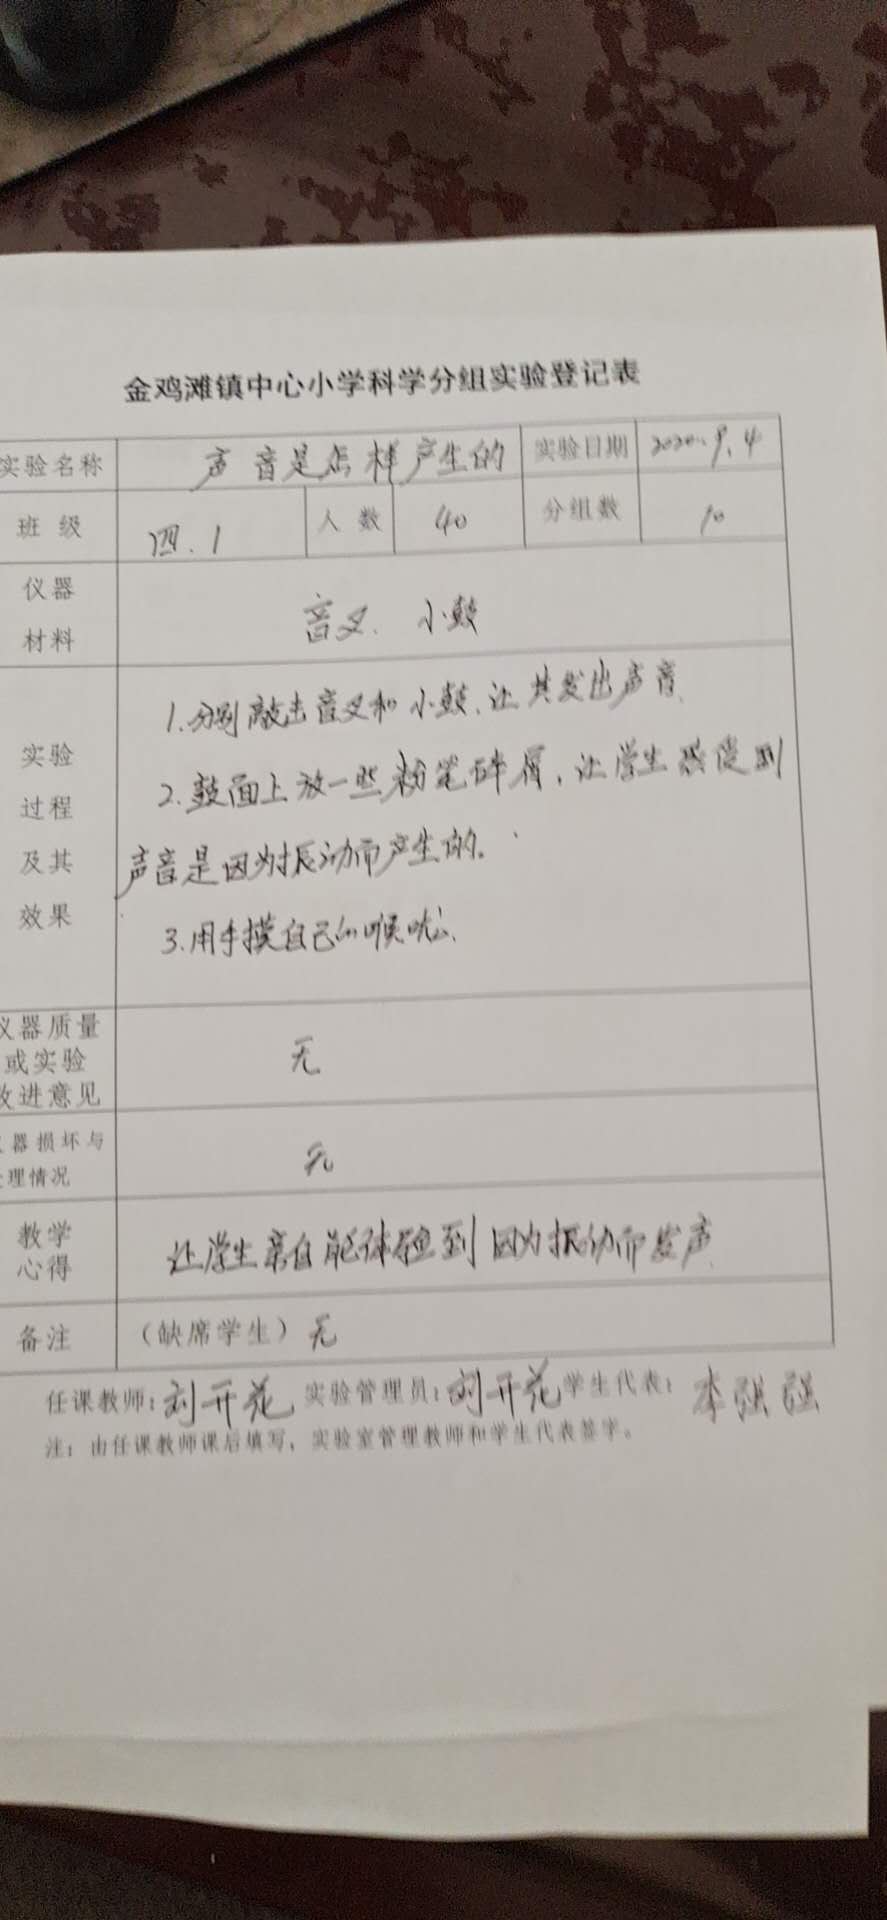 金鸡滩镇中心小学科学分组实验登记表
实验名称 声音是怎样产生的 实验日期 2020.9.4
班级 四.1 人数 40 分组数 10
仪器
材料
音叉、小鼓
1.分别敲击音叉和小鼓,让其发出声音
2.鼓面上放一些粉笔碎屑,让学生感受到
声音是因为振动而产生的。
3.用手摸自己的喉咙
实验
过程
及其
效果
仪器质量
或实验
改进意见
无
仪器损坏与
处理情况
无
教学
心得
让学生亲自能体验到因为振动而发声
备注 (缺席学生) 无
任课教师:刘开花 实验管理员:刘开花 学生代表: 李强强
注:由任课教师课后填写,实验室管理教师和学生代表签字。